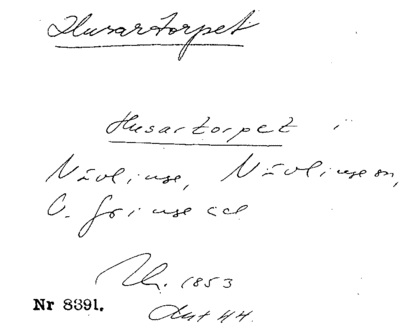 Husartorpet
Husartorpet i
Nävlinge, Nävlinge sn,
V. Göinge hd
1853
Nr 8391.